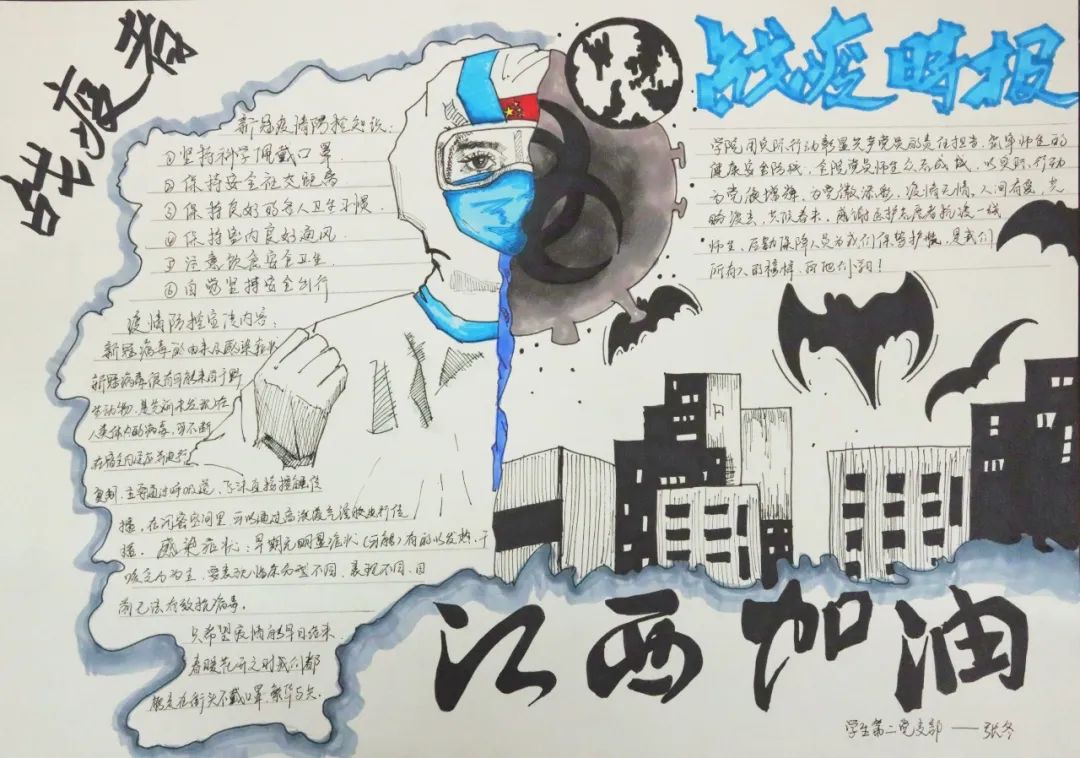 战疫者
新冠疫情防控知识:
①坚持科学佩戴口罩.
②保持安全社交距离
③保持良好的个人卫生习惯.
④保持室内良好通风.
⑤注意饮食安全卫生.
⑥自觉坚持安全出行
疫情防控宣传内容:
新冠病毒的由来及感染症状
新冠病毒很有可能来自于野
生动物.是先前未发现在
人类体内的病毒.可不断
在宿主内
复制.主要通过呼吸道、
播.在闭密空间里可以通过高浓度气溶胶进行传
播.感染症状:早期无明显症状()有的以发热.干
咳乏力为主.要表现临床分型不同.表现不同.目
前已法有效抗病毒.
只希望疫情能早日结束.
春暖花开之时我们都
能走在街头不戴口罩.繁华与共.
战疫时报
学院用实际行动彰显共产党员的责任担当.筑牢师生的
健康安全防线.全院党员师生众志成城.以实际行动
为党旗增辉.为党徽添彩.疫情无情.人间有爱.共
盼疫去.共候春来.感谢医护志愿者抗疫一线
师生、后勤保障人员为我们保驾护航.是我们
所有人的榜样.向他们致!
江西加油
学生第二党支部——张冬